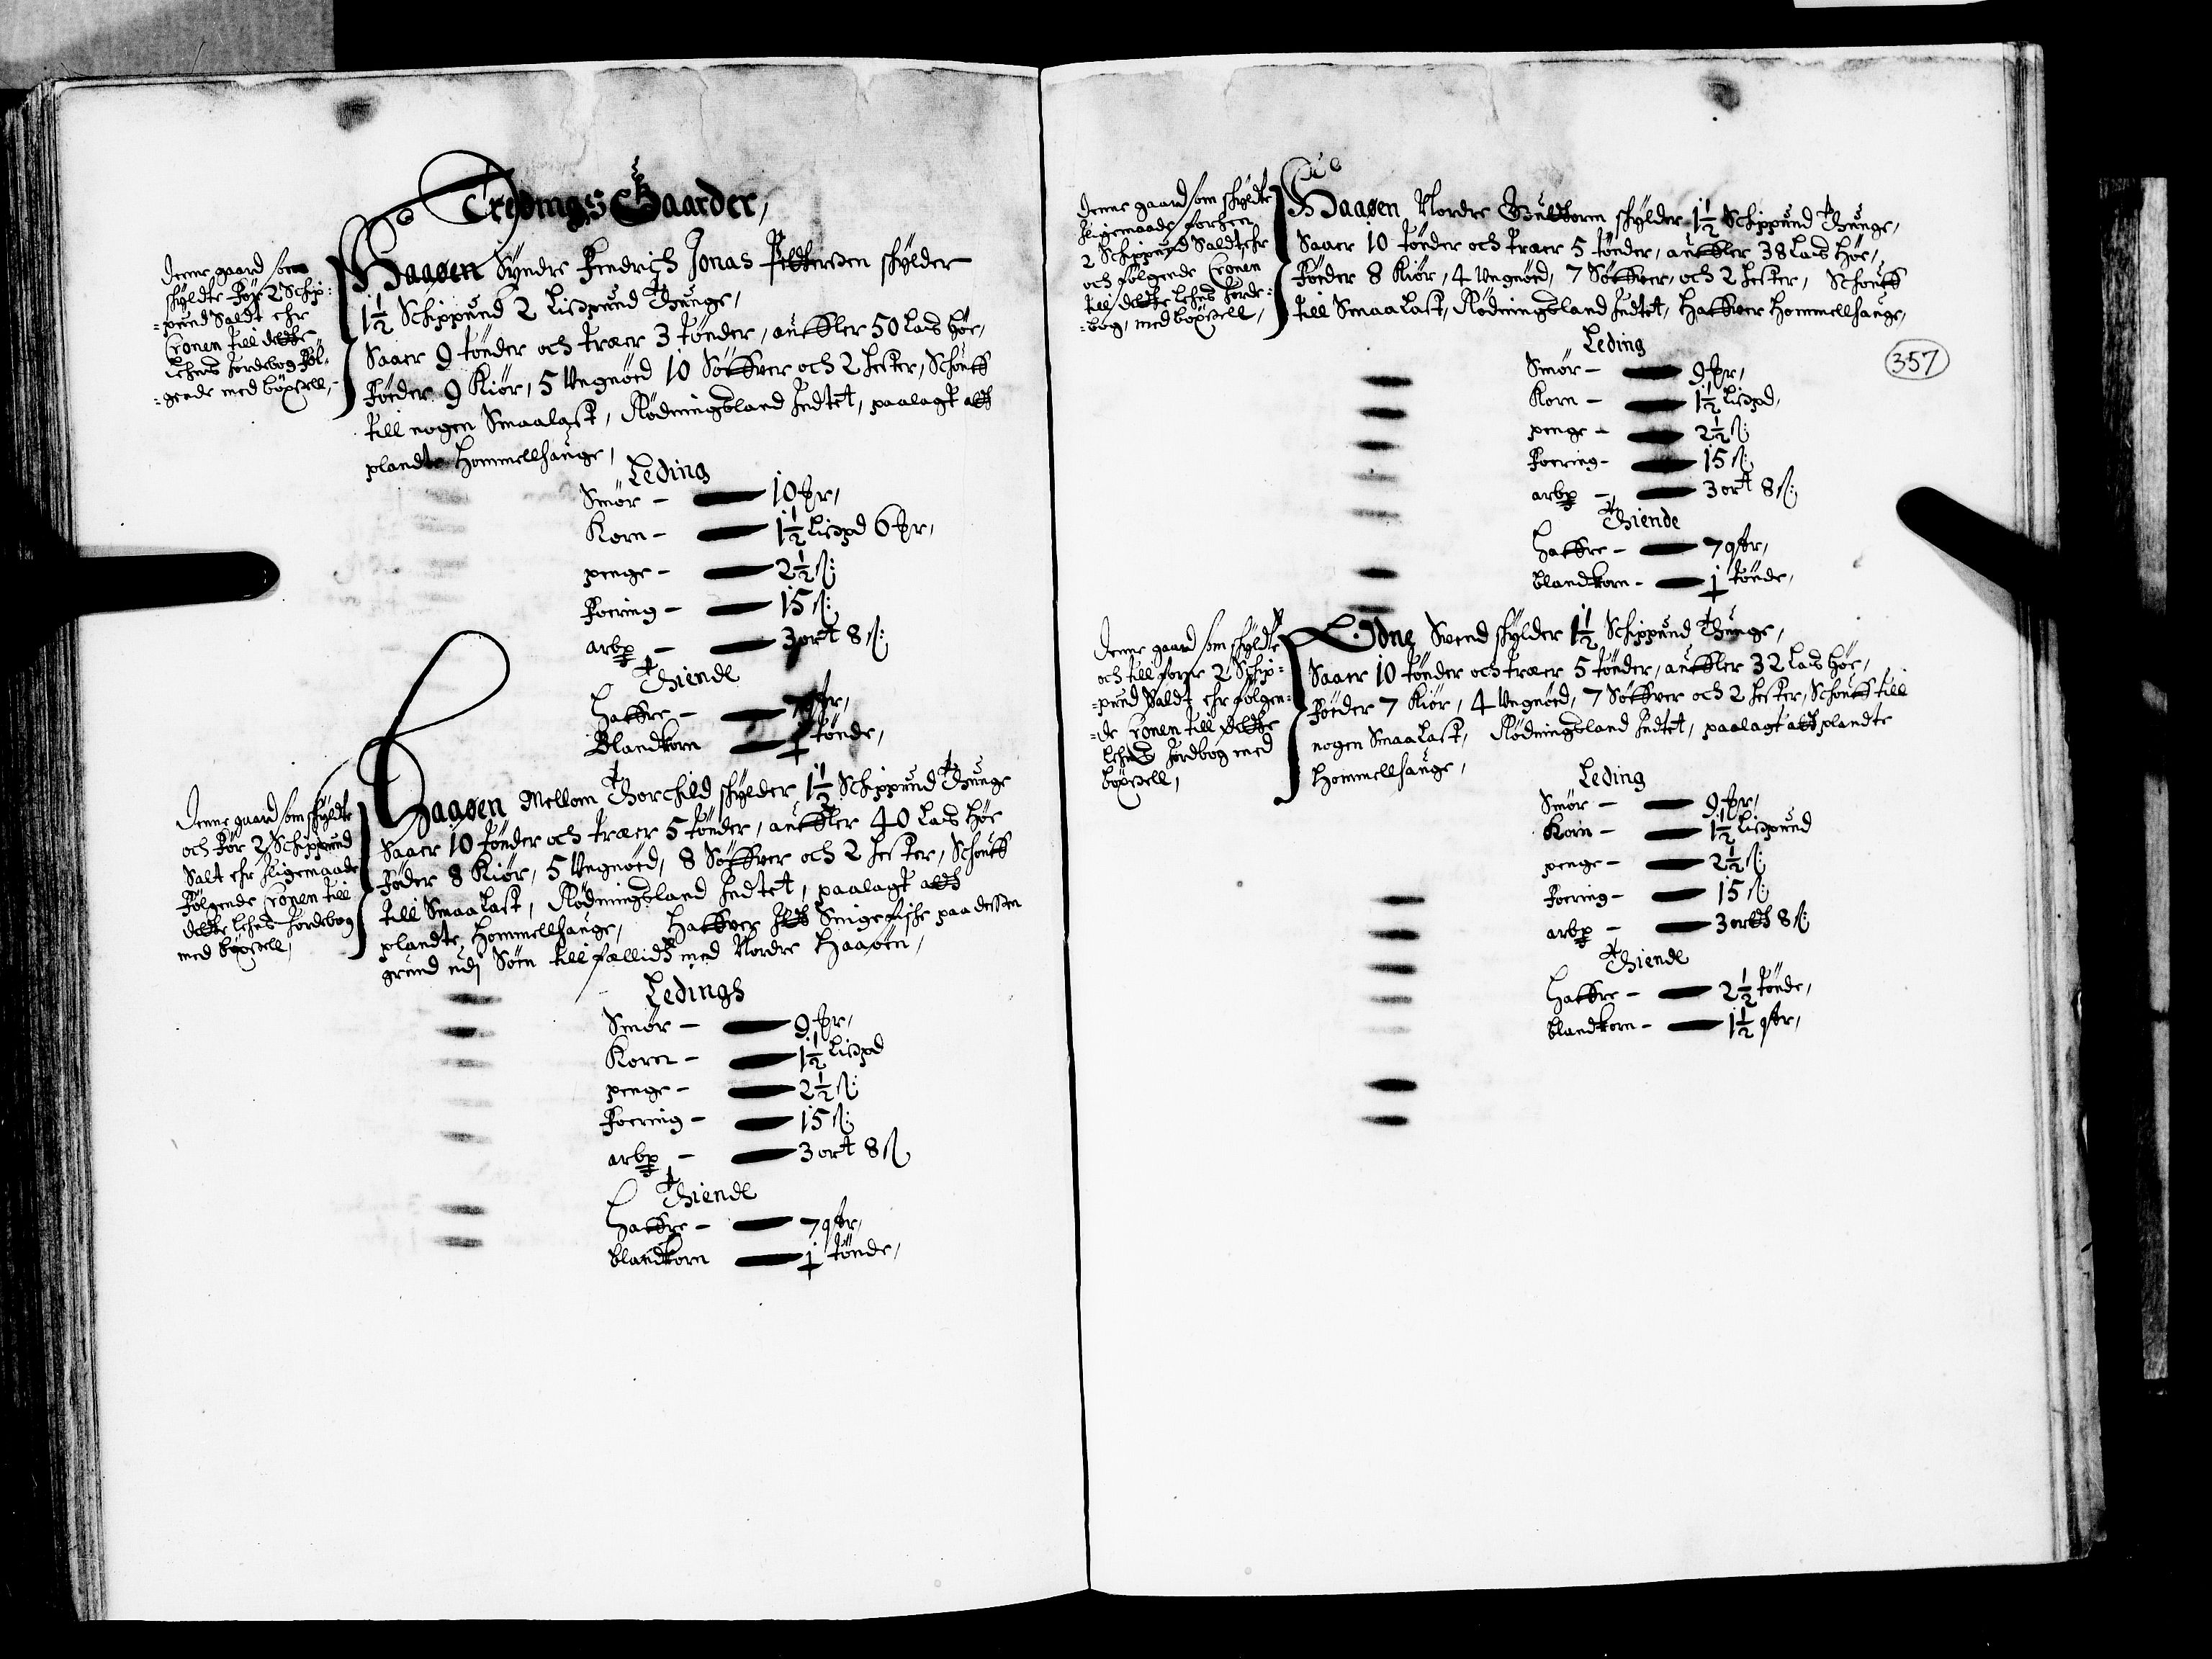 Tredings Gaarder,
Denne gaard som
skyldte før 2 Schip:
=pund Saldt ehr
Cronen till dette
Lehns Jordebog føl-
=gende med böxsell,
Haaøen Syndre Fendrich Jonas Pedtersen skylder
1½ Schippund 2 Lispund Thunge,
Saaer 9 tønder och træer 3 tønder, auffler 50 Lass Høe,
Føeder 9 Kiør, 5 Ungnøed 10 Søffver och 2 hester, Schouff
till nogen Smaalast, Rødningsland Indtet, paalagt att
plandte Hommellhauge,
Leding
Smør - 10 ℔r,
Korn - 1½ Lispd 6 ℔r,
penge - 2½ ß:
Foering - 15 ß:
arbp - 3 ort 8 ß:
Thiende
Haffre - 7 qtr,
Blandkorn 1 tønde,
Denne gaard som skyldte
och før 2 Schippund
Salt ehr ligemaade
følgende Cronen till
dette Lehns Jordebog
med böxsell,
Haaøen Mellom Thorchild skylder 1½ Schippund Thunge
Saaer 10 tønder och træer 5 tønder, auffler 40 Lass Høe
Føder 8 Kiør, 5 Ungnøed, 8 Søffver och 2 hester, Schouff
till Smaalast, Rødningsland Indtet, paalagt att
plandte Hommellhauge, Haffver Itt Snigefiske paa dessen
grund udj Søen till fællids med Nordre Haaøen,
Ledings
Smør - 9 ℔r,
Korn - 1½ Lispd
penge - 2½ ß:
Foering - 15 ß:
arbp - 3 ort 8 ß
Thiende
Haffre - 7 qtr,
blandkorn 1 tønde,
Denne gaard som skyldte
ligemaade forhen
2 Schippund Saldt ehr
och følgende Cronen
till dette Lehns Jorde:
=bog, med böxsell,
Haaøen Nordre Guldtorm skylder 1½ Schippund Thunge,
Saaer 10 tønder och træer 5 tønder, auffler 38 Lass Høe,
Føeder 8 Kiør, 4 Ungnøed, 7 Søffver, och 2 hester, Schouff
till Smaalast, Rødningsland Indtet, Haffver Hommellhauge,
357
Leding
Smør - 9 ℔r,
Korn - 1½ Lispd,
penge - 2½ ß:
Foering - 15 ß:
arbp - 3 ort 8 ß:
Thiende
Haffre - 7 qtr,
blandkorn - 1 tønde,
Denne gaard som skyldte
och till forne 2 Schip:
=pund Saldt ehr følgen:
=de Cronen till dette
Lehns Jordbog med
böxsell,
Odne Svend skylder 1½ Schippund Thunge,
Saaer 10 tønder och træer 5 tønder, auffler 32 Lass Høe,
Føeder 7 Kiør, 4 Ungnøed, 7 Søffver och 2 hester, Schouff till
nogen Smaalast, Rødningsland Indtet, paalagt att plandte
Hommellhauge,
Leding
Smør - 9 ℔r,
Korn - 1½ Lispund
penge - 2½ ß:
Foering - 15 ß:
arbp - 3 ortt 8 ß:
Thiende
Haffre - 2½ tønde,
blandkorn - 1½ qtr,